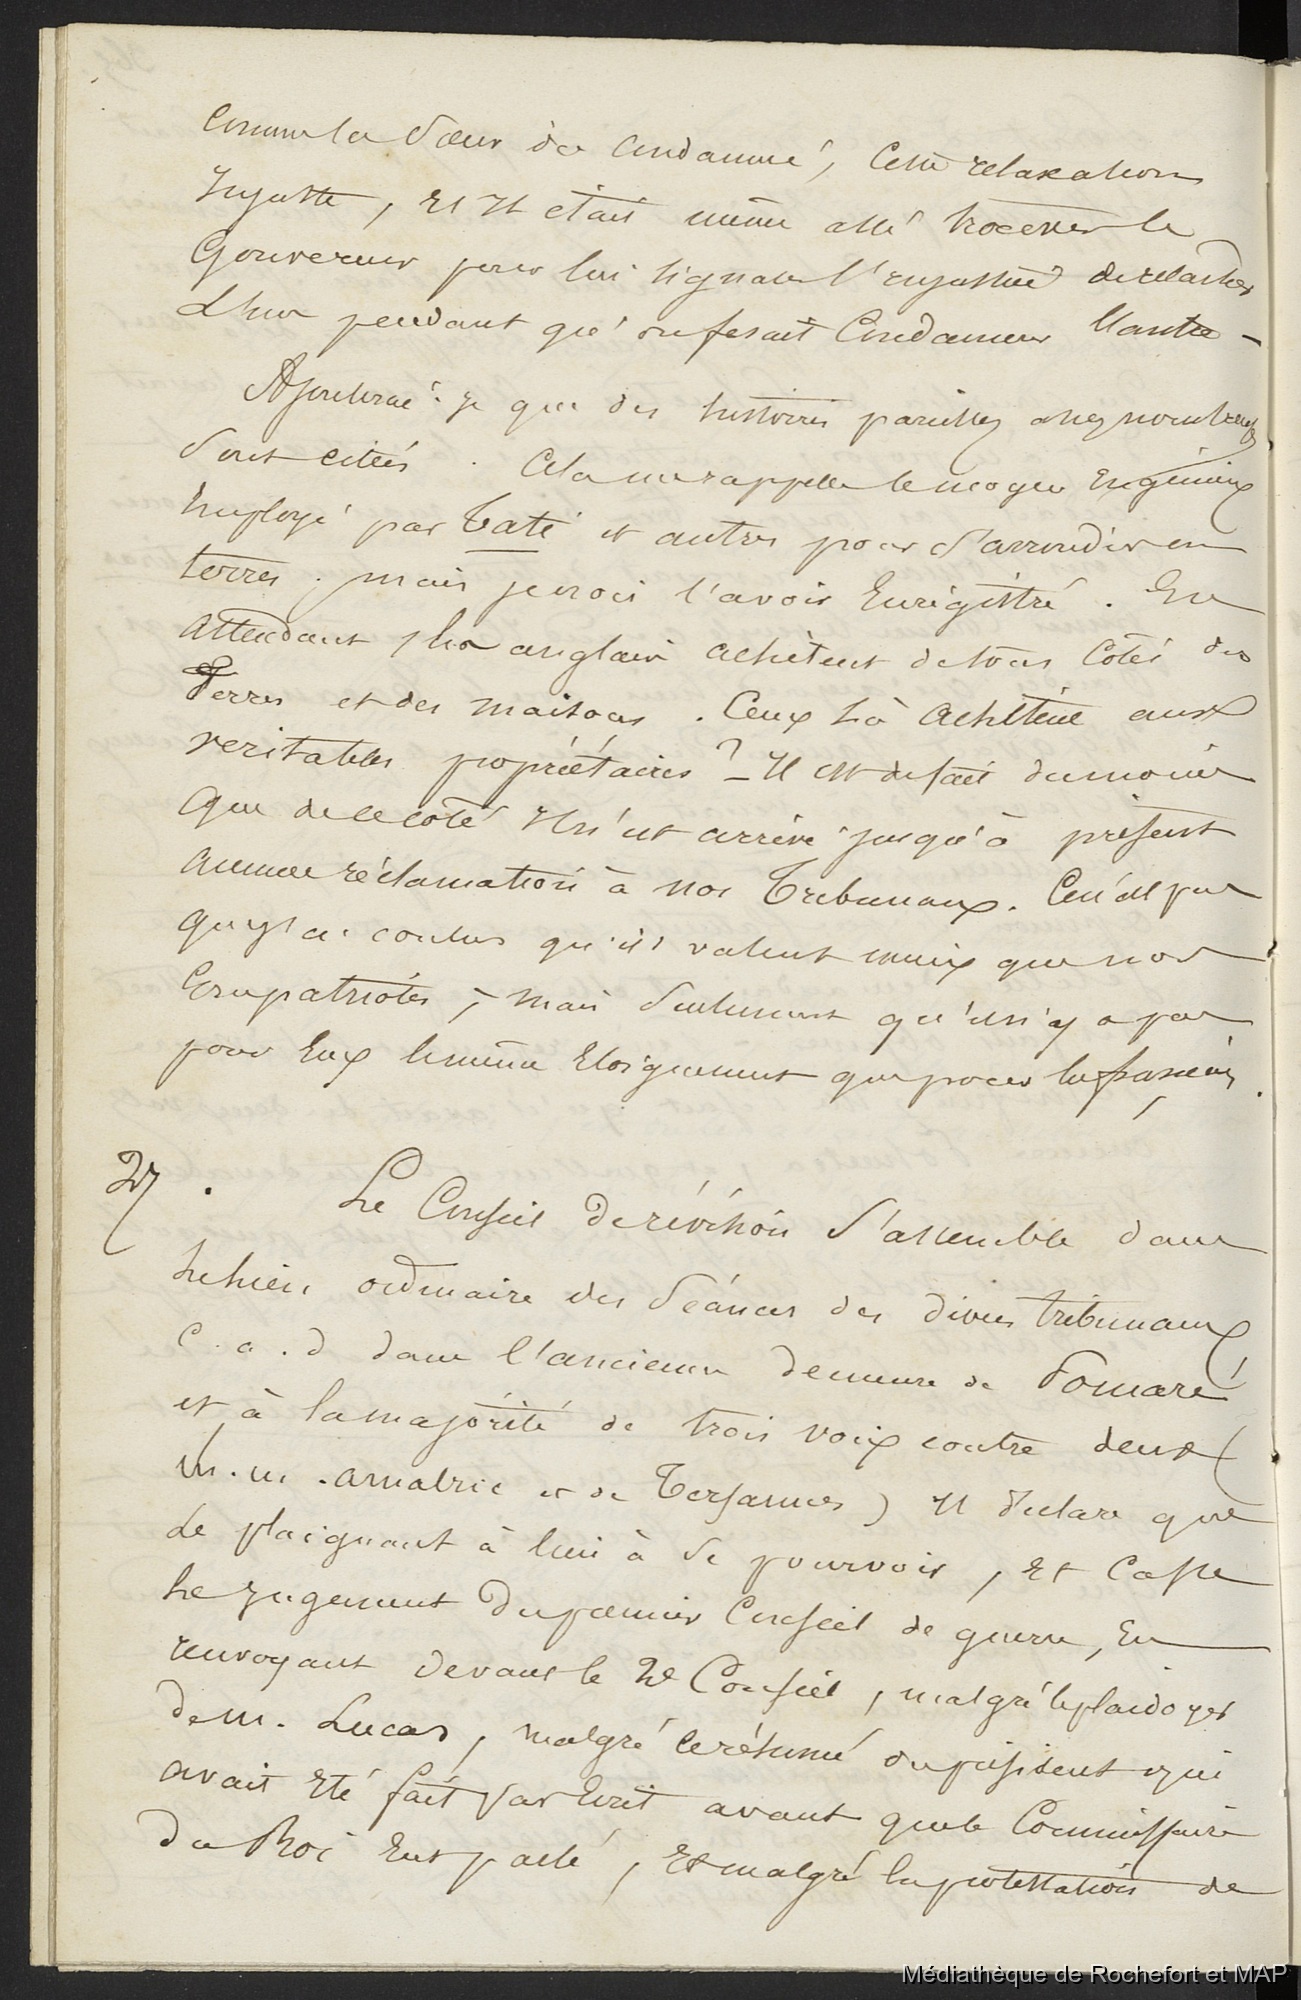 comme la Sœur du condamné, cette relaxation
Injuste, Et Il était même allé trouver le
Gouverneur pour lui signaler l'injustice de relacher
L'un pendant qu'on fesait Condamner l'autre -
Ajouterai-je que des histoires pareilles assez nombreuses
Sont citées. Cela me rappelle le moyen Ingénieux
Employé par Taté et autres pour s'arrondir en
terres. mais je crois l'avoir Enrégistré. En
Attendant, les anglais achètent de tous Cotés des
Terres et des maisons. Ceux là achètent aux
veritables propriétaires ? - Il est de fait du moins
Que de ce coté Il n'est arrivé jusqu'à présent
Aucune réclamation à nos Tribunaux. Ce n'est pas
que j'en conclus qu'ils valent mieux que nos
Compatriotes, - mais Seulement qu'il n'y a pas
pour Eux le même Eloignement que pour les français.
27. Le Conseil de révision S'assemble dans
Le lieu ordinaire des Séances des divers tribunaux
C. a. d dans l'ancienne demeure de Pomaré
et à la majorité de trois voix contre deux (
M. m. Amalric et de Tersannes) Il déclare que
Le plaignant à lieu à Se pourvoir, Et Casse
Le Jugement du premier Conseil de guerre, En
renvoyant devant le 2e Conseil, malgré le plaidoyer
de m. Lucas, malgré le résumé du président qui
avait Eté fait par Ecrit avant que le Commissaire
du Roi Eut parlé, Et malgré la protestation de
Médiathèque de Rochefort et MAP